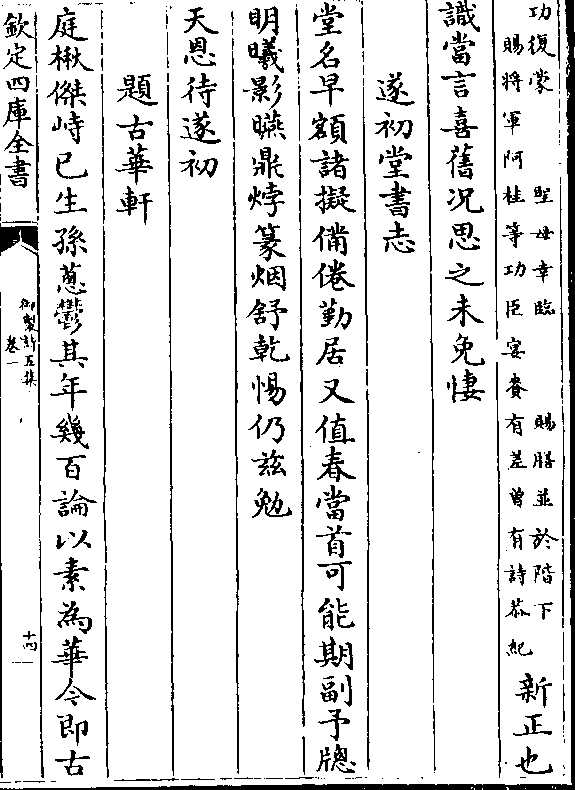 功復蒙　聖母幸臨　賜膳並於階下
賜將軍阿桂等功臣宴賚有差曾有詩恭紀
新正也
識當言喜舊况思之未免悽
遂初堂書志
堂名早額諸擬備倦勤居又值春當首可能期副予牕
明曦影曣鼎烬篆烟舒乾惕仍兹勉
天恩待遂初
題古華軒
庭楸傑峙已生孫蔥鬱其年幾百論以素為華今即古
欽定四庫全書
御製詩五集
卷一
十四